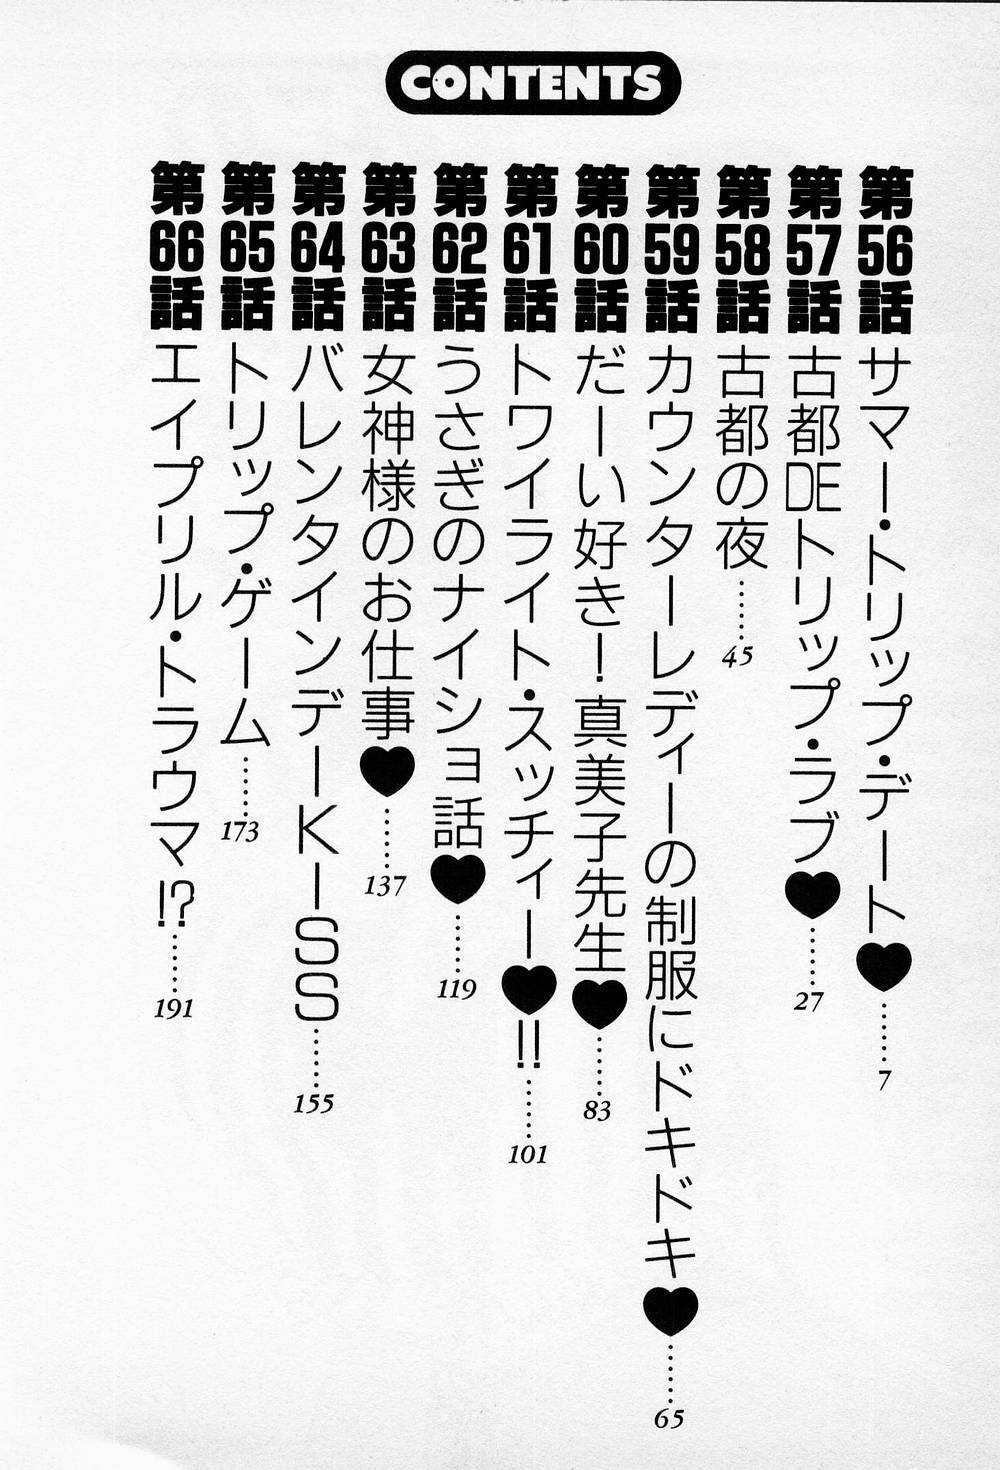 CONTENTS
第56話 サマー・トリップ・デート♥……7
第57話 古都DEトリップ・ラブ♥……27
第58話 古都の夜……45
第59話 カウンターレディーの制服にドキドキ♥……65
第60話 だーい好き!真美子先生♥……83
第61話 トワイライト・スッチィー♥!!……101
第62話 うさぎのナイショ話♥……119
第63話 女神様のお仕事♥……137
第64話 バレンタインデーKISS……155
第65話 トリップ・ゲーム……173
第66話 エイプリル・トラウマ!?……191